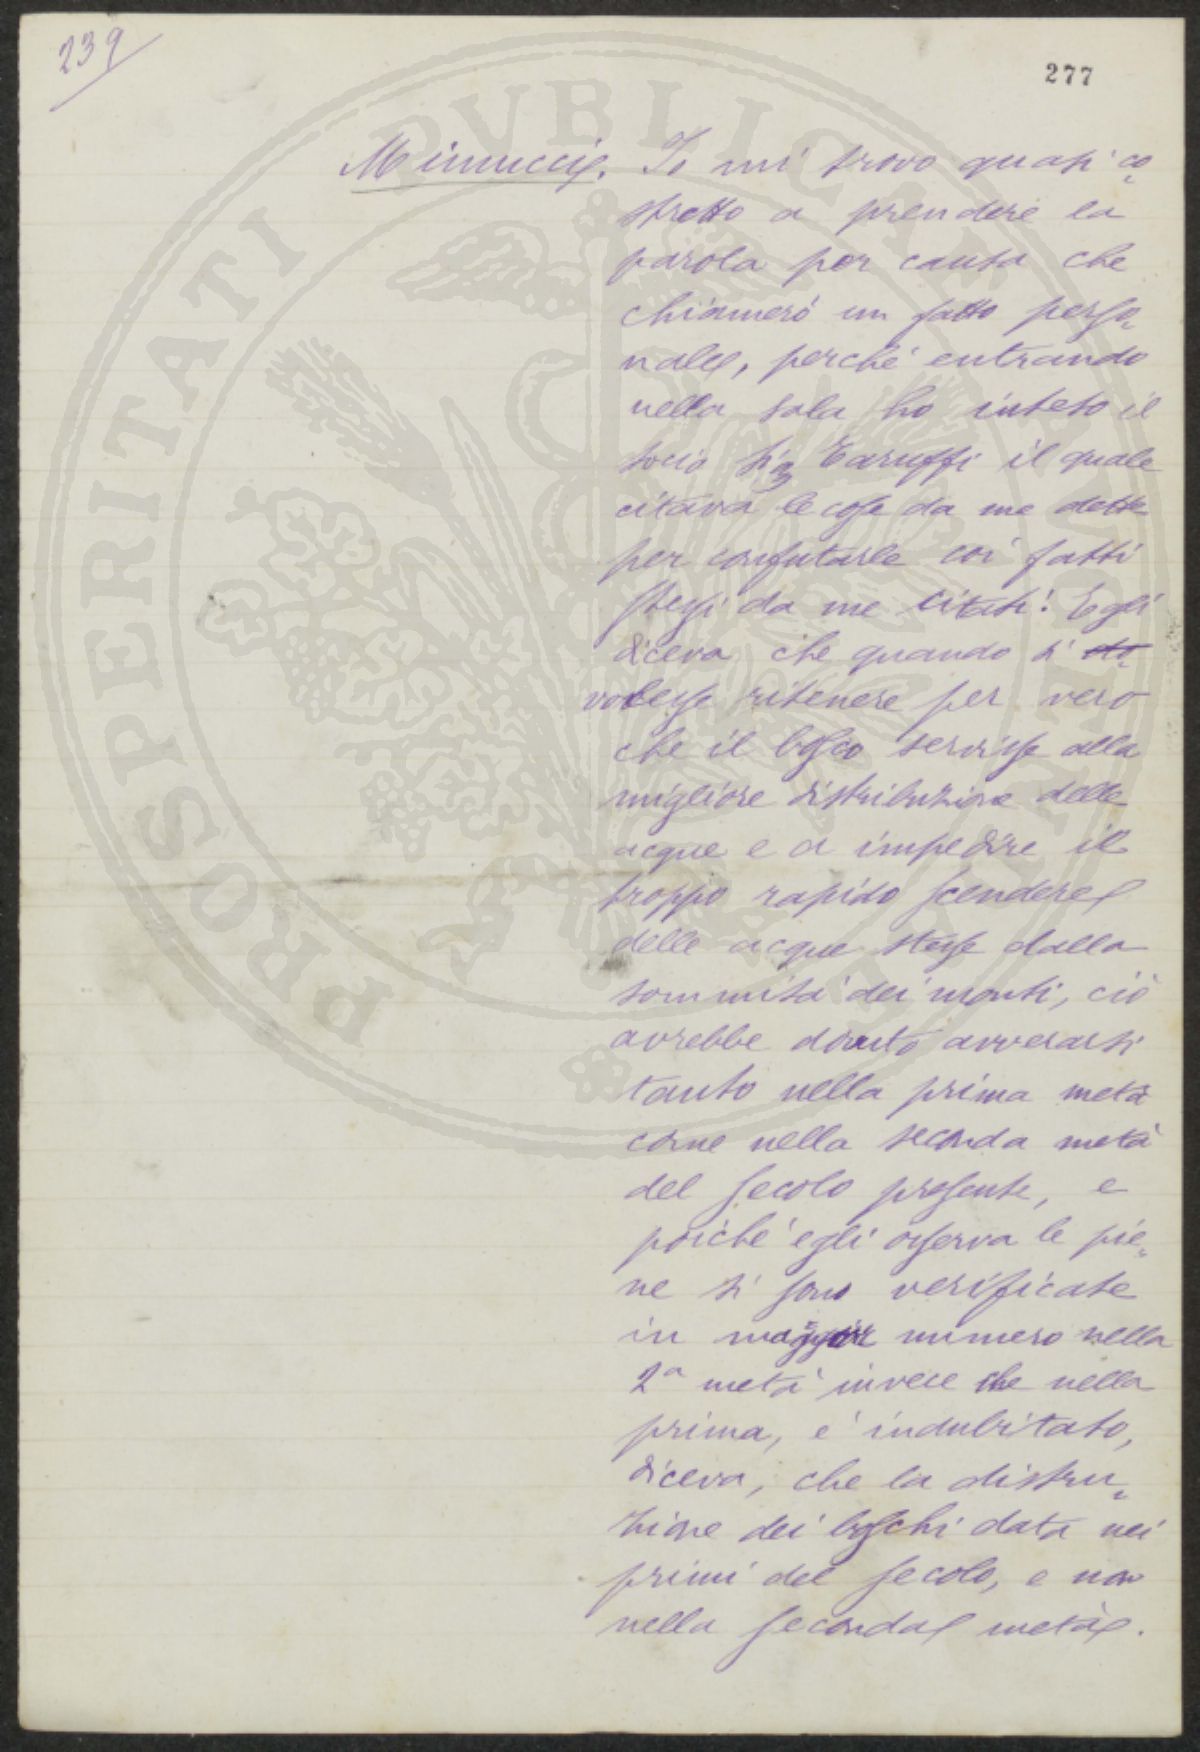 239
277
PROSPERITATI PUBLICAE
Minucci. Io mi trovo quasi co„
stretto a prendere la
parola per causa che
chiamerò un fatto perso„
nale, perchè entrando
nella sala ho inteso il
socio Sig Taruffi il quale
citava le cose da me dette
per confutarle coi fatti
stessi da me citati! Egli
diceva che quando si do„
volesse ritenere per vero
che il bosco servisse alla
migliore distribuzione delle
acque e a impedire il
troppo rapido scendere
delle acque stesse dalla
sommità dei monti, ciò
avrebbe dovuto avverarsi
tanto nella prima metà
come nella seconda metà
del secolo presente, e
poichè egli osserva le pie„
ne si sono verificate
in maggior numero nella
2a metà invece che nella
prima, è indubitato,
diceva, che la distru„
zione dei boschi data nei
primi del secolo, e non
nella seconda metà.